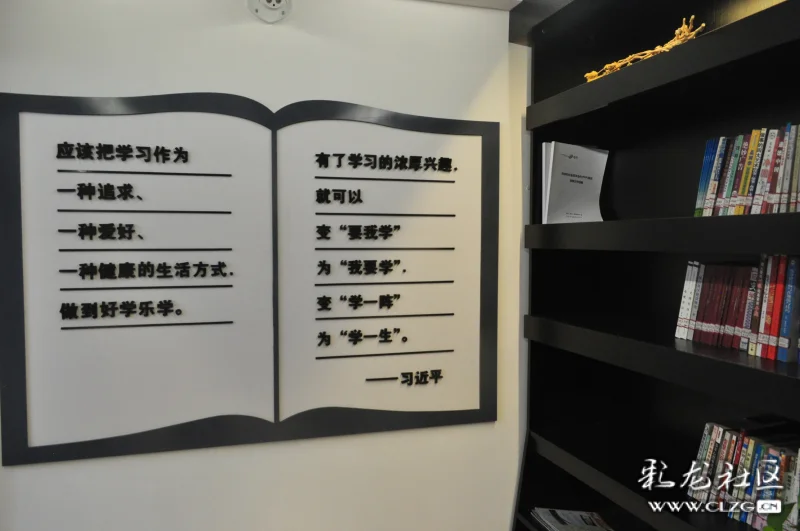 应该把学习作为
一种追求、
一种爱好、
一种健康的生活方式，
做到好学乐学。
有了学习的浓厚兴趣，
就可以
变“要我学”
为“我要学”，
变“学一阵”
为“学一生”。
——习近平
彩龙社区
WWW.CLZG.CN